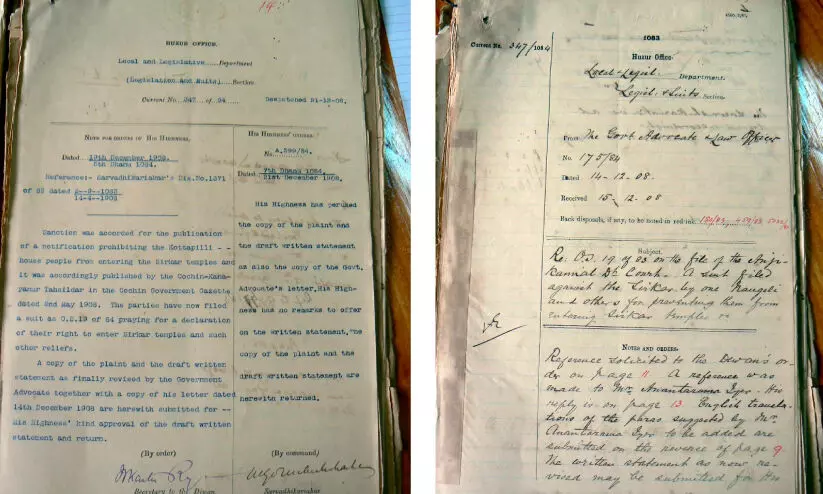 14
HUZUR OFFICE.
Local and Legislative Department
(Legislation and Suits) Section
Current No. 347 of 84. Despatched 21-12-08.
NOTE FOR ORDERS OF HIS HIGHNESS.
Dated 19th December 1908.
5th Dhanu 1084.
Reference:- Sarvadhikariakar's Dis.No.1371
of 83 dated 2--9--1083
14-4--1908
Sanction was accorded for the publication
of a notification prohibiting the Kottapilli --
house people from entering the Sirkar temples and
it was accordingly published by the Cochin-Kana-
yanur Tahsildar in the Cochin Government Gazette
dated 2nd May 1908. The parties have now filed
a suit as O.S.19 of 84 praying for a declaration
of their right to enter Sirkar temples and such
other reliefs.
A copy of the plaint and the draft written
statement as finally revised by the Government
Advocate together with a copy of his letter dated
14th December 1908 are herewith submitted for --
His Highness' kind approval of the draft written
statement and return.
(By order)
Secretary to the Diwan
HIS HIGHNESS' ORDERS.
No. A.299/84.
Dated 7th Dhanu 1084.
21st December 1908.
His Highness has perused
the copy of the plaint and
the draft written statement
as also the copy of the Govt.
Advocate's letter. His High-
ness has no remarks to offer
on the written statement. The
copy of the plaint and the
draft written statement are
herewith returned.
(By command)
Sarvadhikariakar
1083
Current No. 347/1084
Huzur Office.
Local & Legisl. Department.
Legisl. & Suits Section.
From The Govt Advocate & Law Officer
No. 175/84
Dated 14-12-08.
Received 15-12-08
Back disposals, if any, to be noted in red ink.
Subject.
Re: O.S. 19 of 83 on the file of the Anji-
kaimal Dt. Court. - A suit filed
against the Sirkar by one Nangeli
and others for preventing them from
entering Sirkar temples
NOTES AND ORDERS.
Reference solicited to the Dewan's or-
der on page 11. A reference was
made to Mr. Anantarama Iyer. His
reply is on page 13. English transla-
tions of the paras suggested by Mr.
Anantarama Iyer to be added are
submitted on the reverse of page 9.
The written statement as now re-
vised may be submitted for His